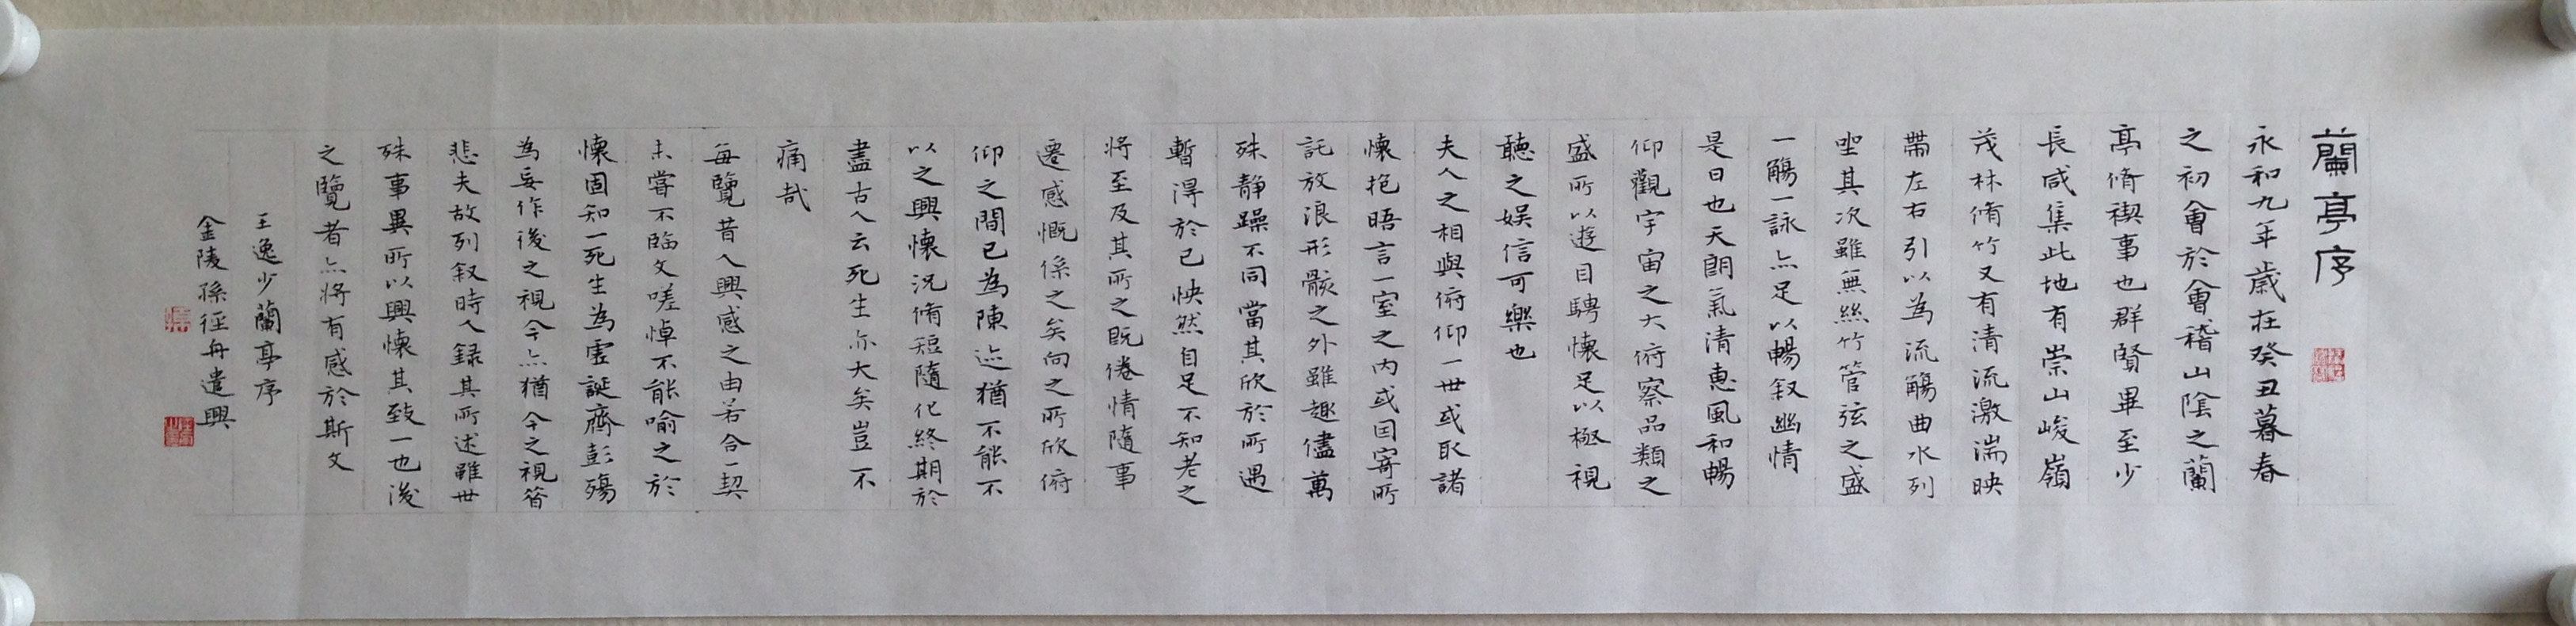 蘭亭序
永和九年歲在癸丑暮春
之初會於會稽山陰之蘭
亭脩禊事也群賢畢至少
長咸集此地有崇山峻嶺
茂林脩竹又有清流激湍映
帶左右引以為流觴曲水列
坐其次雖無絲竹管弦之盛
一觴一詠亦足以暢叙幽情
是日也天朗氣清惠風和暢
仰觀宇宙之大俯察品類之
盛所以遊目騁懷足以極視
聽之娛信可樂也
夫人之相與俯仰一世或取諸
懷抱晤言一室之内或因寄所
託放浪形骸之外雖趣儘萬
殊静躁不同當其欣於所遇
暫得於己怏然自足不知老之
將至及其所之既倦情隨事
遷感慨係之矣向之所欣俯
仰之間已為陳迹猶不能不
以之興懷況脩短隨化終期於
盡古人云死生亦大矣豈不
痛哉
每覽昔人興感之由若合一契
未嘗不臨文嗟悼不能喻之於
懷固知一死生為虛誕齊彭殤
為妄作後之視今亦猶今之視昔
悲夫故列叙時人錄其所述雖世
殊事異所以興懷其致一也後
之覽者亦將有感於斯文
王逸少蘭亭序
金陵孫徑舟遣興